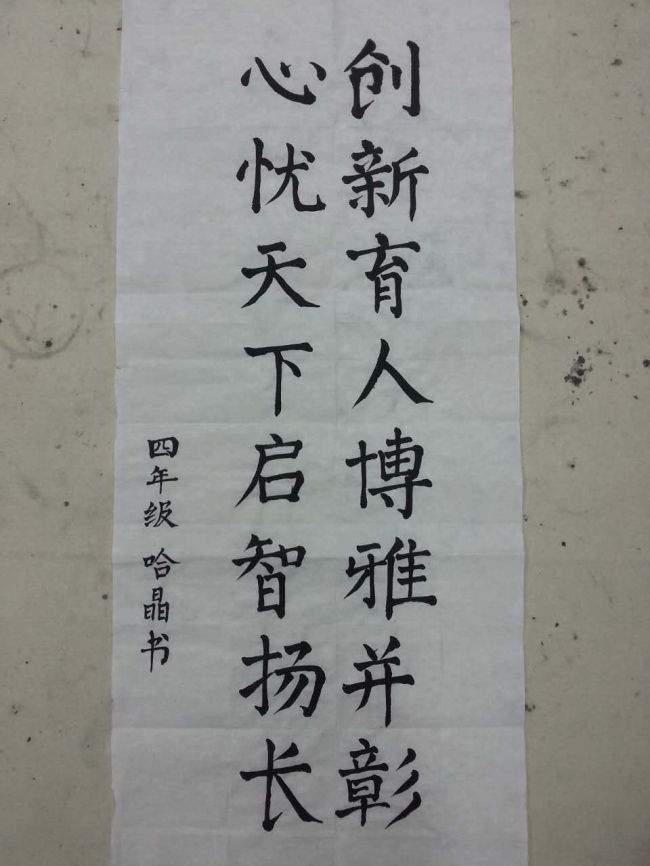 创新育人博雅并彰
心忧天下启智扬长
四年级 哈晶书